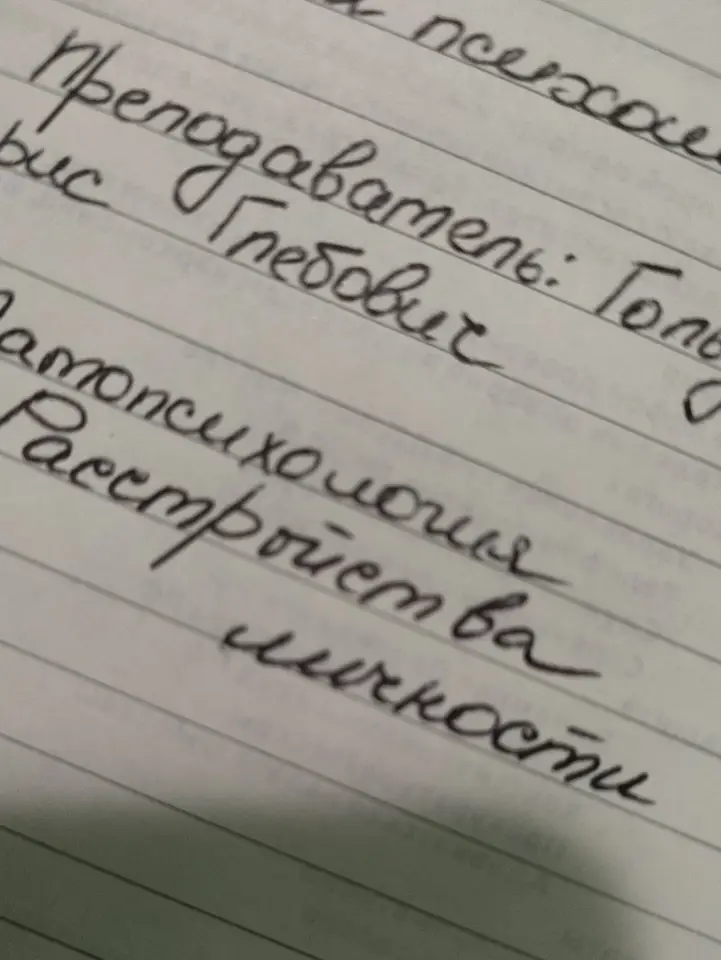 психол
Преподаватель: Голь
рис Глебович
Патопсихология
Расстройства
личности